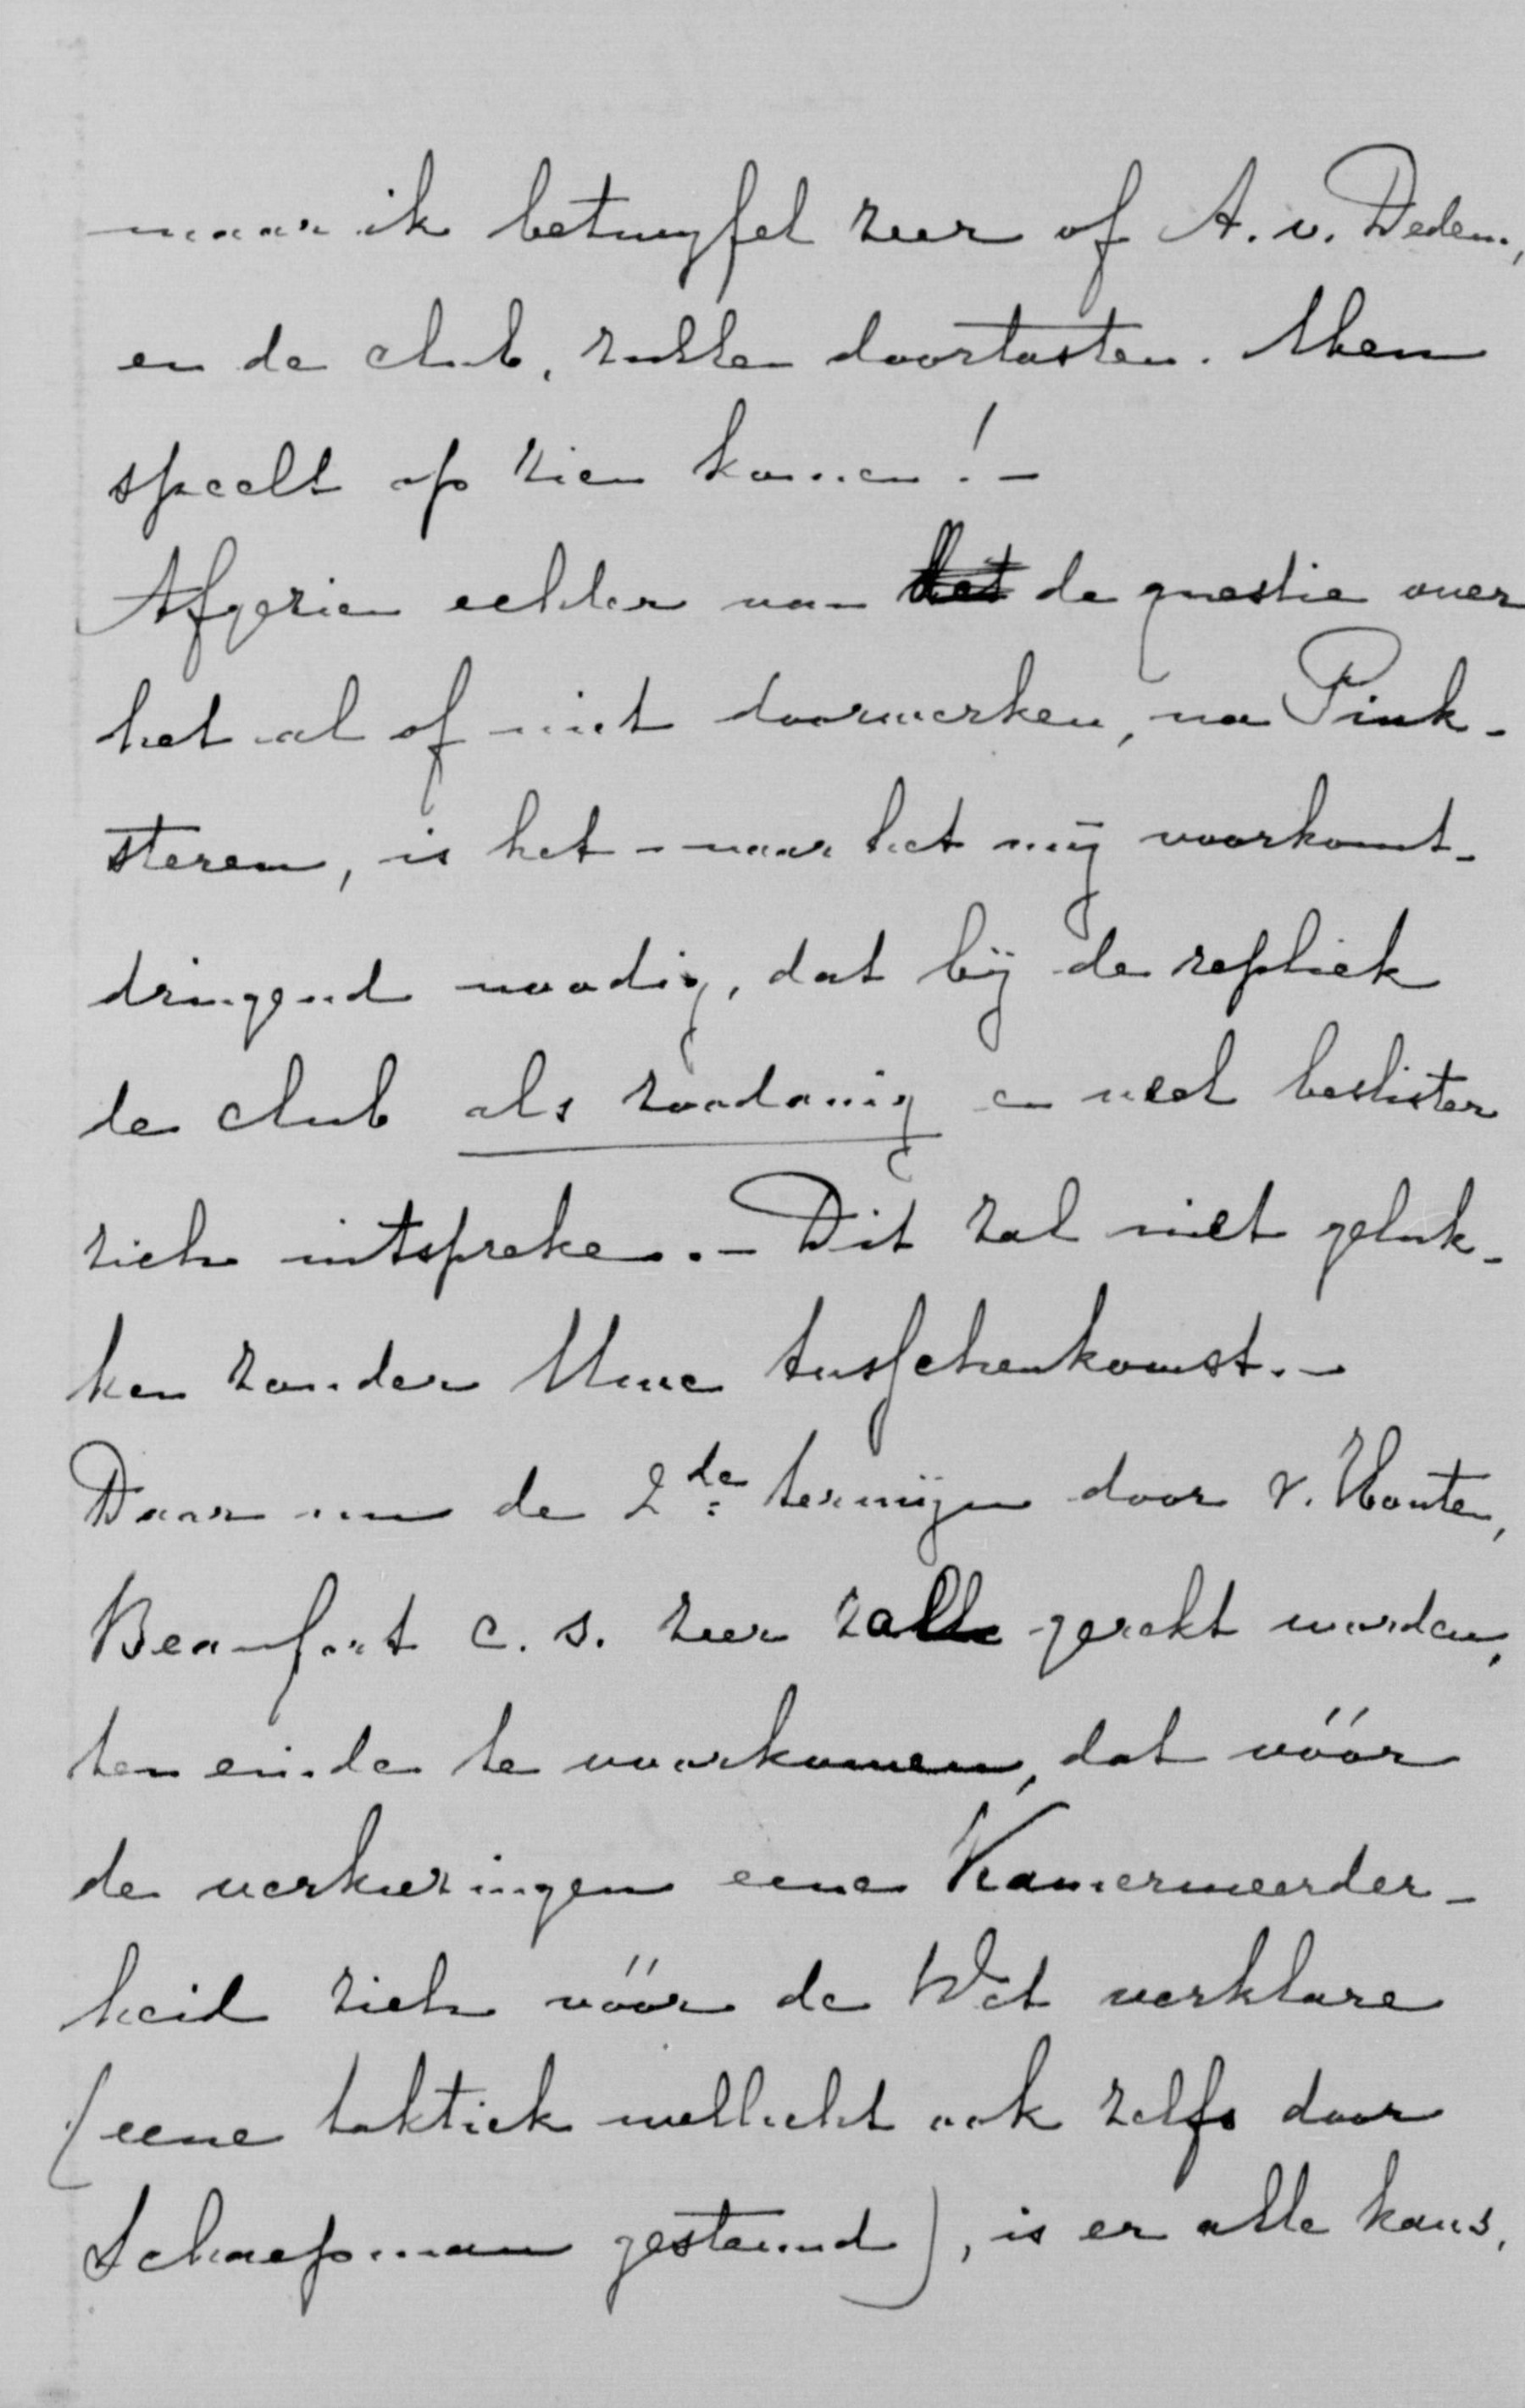 maar ik betwyfel zeer of A. v. Dedem,
en de club, zullen doortasten. Men
speelt op zien komen! -
Afgezien echter van het de questie over
het al of niet doorwerken, na Pink-
steren, is het - naar het mij voorkomt -
dringend noodig, dat bij de repliek
de club als zoodanig en veel beslister
zich uitspreke. - Dit zal niet geluk-
ken zonder Uwe tusschenkomst. -
Daar nu de 2de termijn door v. Houten,
Beaufort c. s. zeer zal gerekt worden,
ten einde te voorkomen, dat vóór
de verkiezingen eene Kamermeerder-
heid zich vóór de Wet verklare
(eene taktiek wellicht ook zelfs door
Schaepman gesteund), is er alle kans,